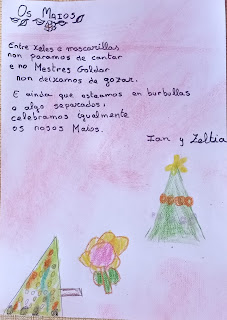 Os Maios
Entre xeles e mascarillas
non paramos de cantar
e no Mestres Goldar
non deixamos de gozar.
E ainda que esteamos en burbullas
o algo separados,
celebramos igualmente
os nosos Maios.
Ian y Zeltia